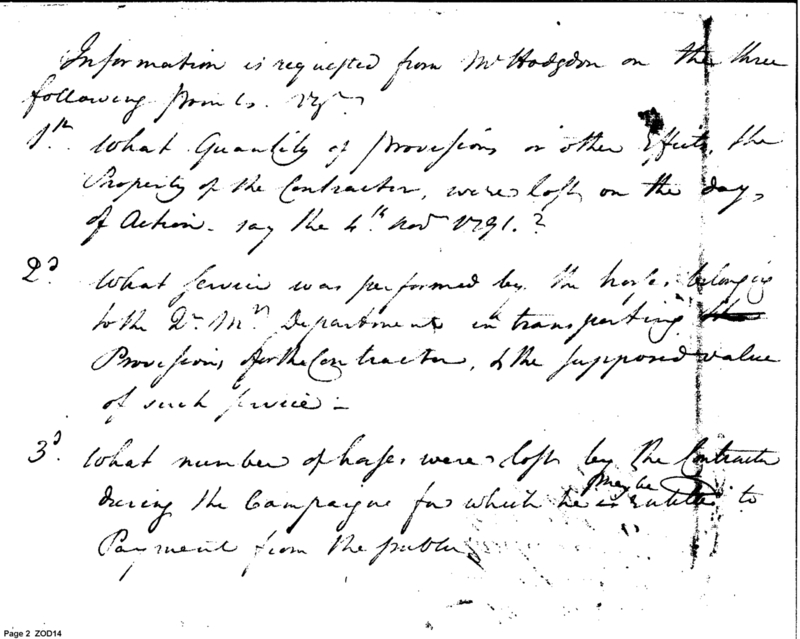 Information is requested from Mr Hodgdon on the three
following points. Vizt
1st. What Quantity of provisions or other Effects, the
Property of the Contractor, were lost on the day
of Action - say the 4th Novr 1791.?
2d. What service was performed by the horses belonging
to the Qr Mrs Department in transporting the
Provisions for the Contractor, & the supposed value
of such service -
3d. What number of horses were lost by the Contractor
during the Campaign for which he is may be Entitled to
Payment from the public
Page 2 ZOD14